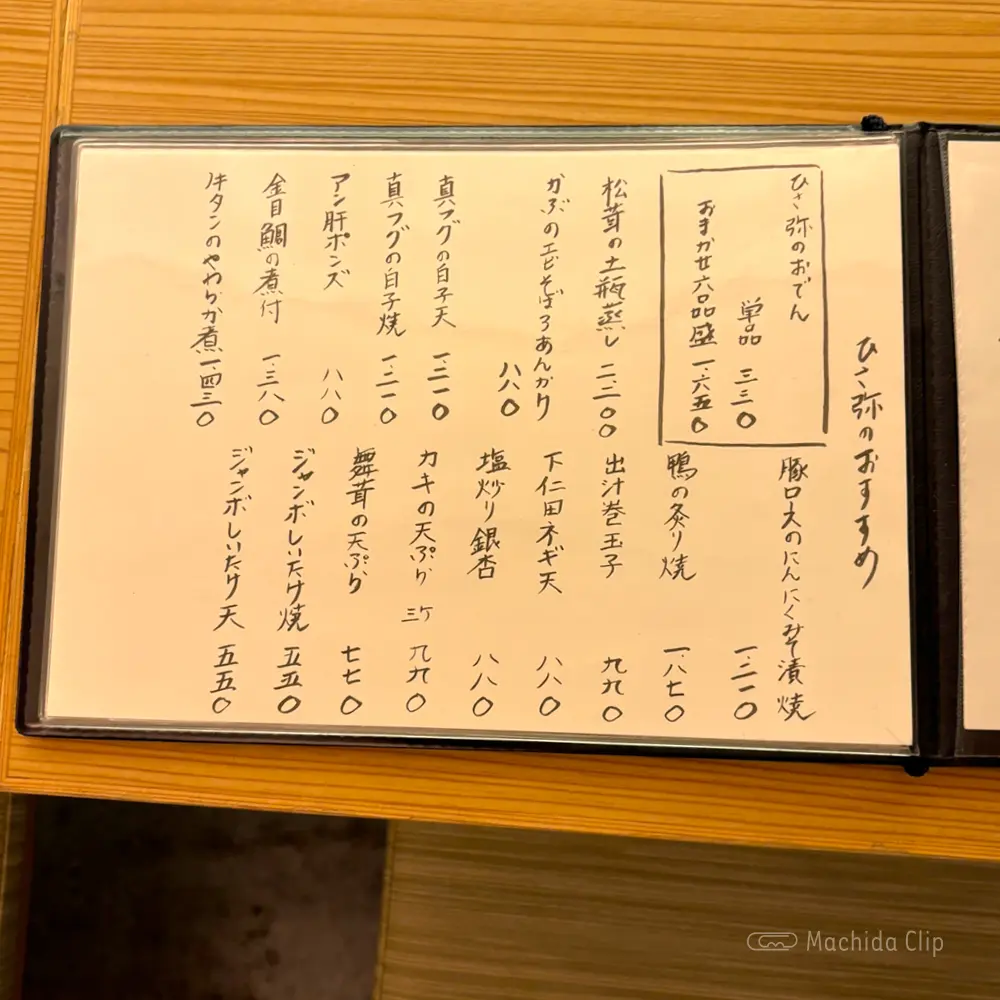 ひさ弥のおすすめ
ひさ弥のおでん
単品 三三〇
おまかせ六品盛 一、六五〇
松茸の土瓶蒸し 二二〇〇
かぶのエビそぼろあんかけ 八八〇
真フグの白子天 一、二一〇
真フグの白子焼 一、二一〇
アン肝ポンズ 八八〇
金目鯛の煮付 一、三八〇
牛タンのやわらか煮 一、四三〇
豚ロースのにんにくみそ漬焼 一、二一〇
鴨の炙り焼 一、八七〇
出汁巻玉子 九九〇
下仁田ネギ天 八八〇
塩炒り銀杏 八八〇
カキの天ぷら 三ケ 九九〇
舞茸の天ぷら 七七〇
ジャンボしいたけ焼 五五〇
ジャンボしいたけ天 五五〇
Machida Clip